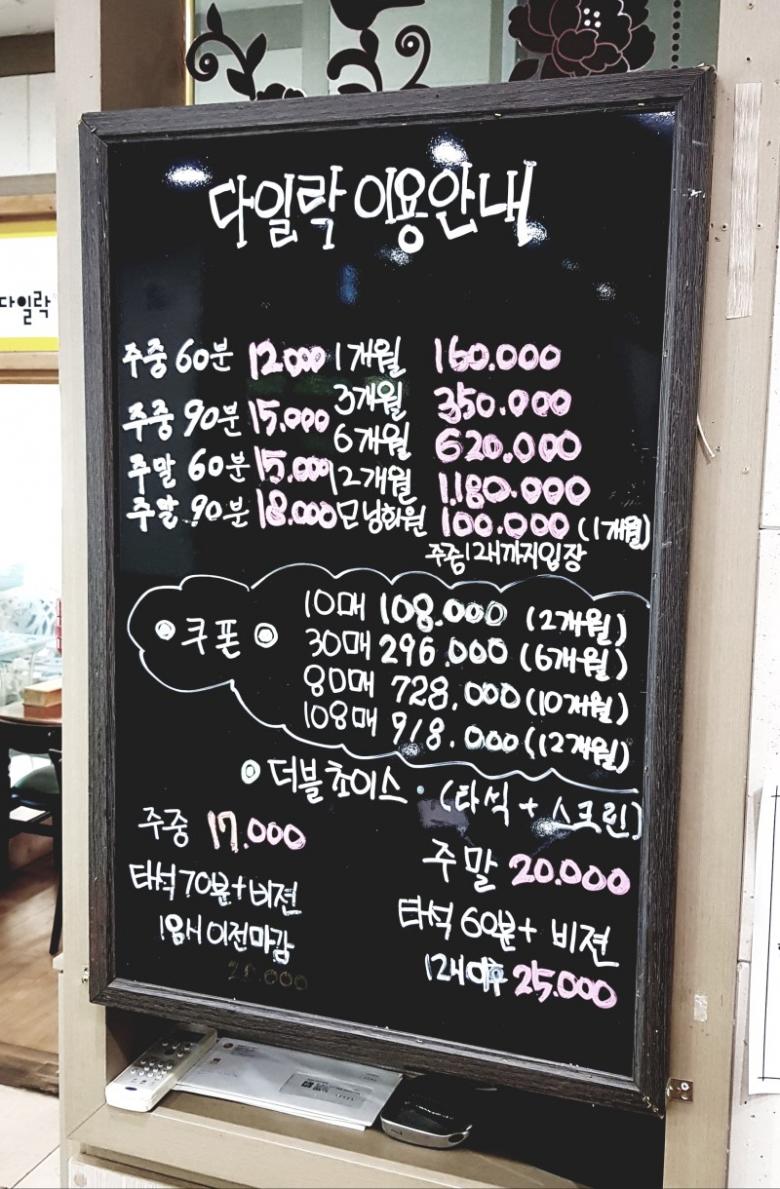 다일락 이용안내
다일락
주중 60분 12.000 1개월 160.000
3개월 350.000
주중 90분 15.000
6개월 620.000
주말 60분 15.000 12개월 1.180.000
주말 90분 18.000 모닝회원 100.000 (1개월)
주중 12시까지입장
쿠폰
10매 108.000 (2개월)
30매 296.000 (6개월)
80매 728.000 (10개월)
108매 918.000 (12개월)
더블초이스 · (타석 + 스크린)
주중 17.000
주말 20.000
타석 70분+비젼
타석 60분+ 비젼
18시 이전마감
12시이후 25.000